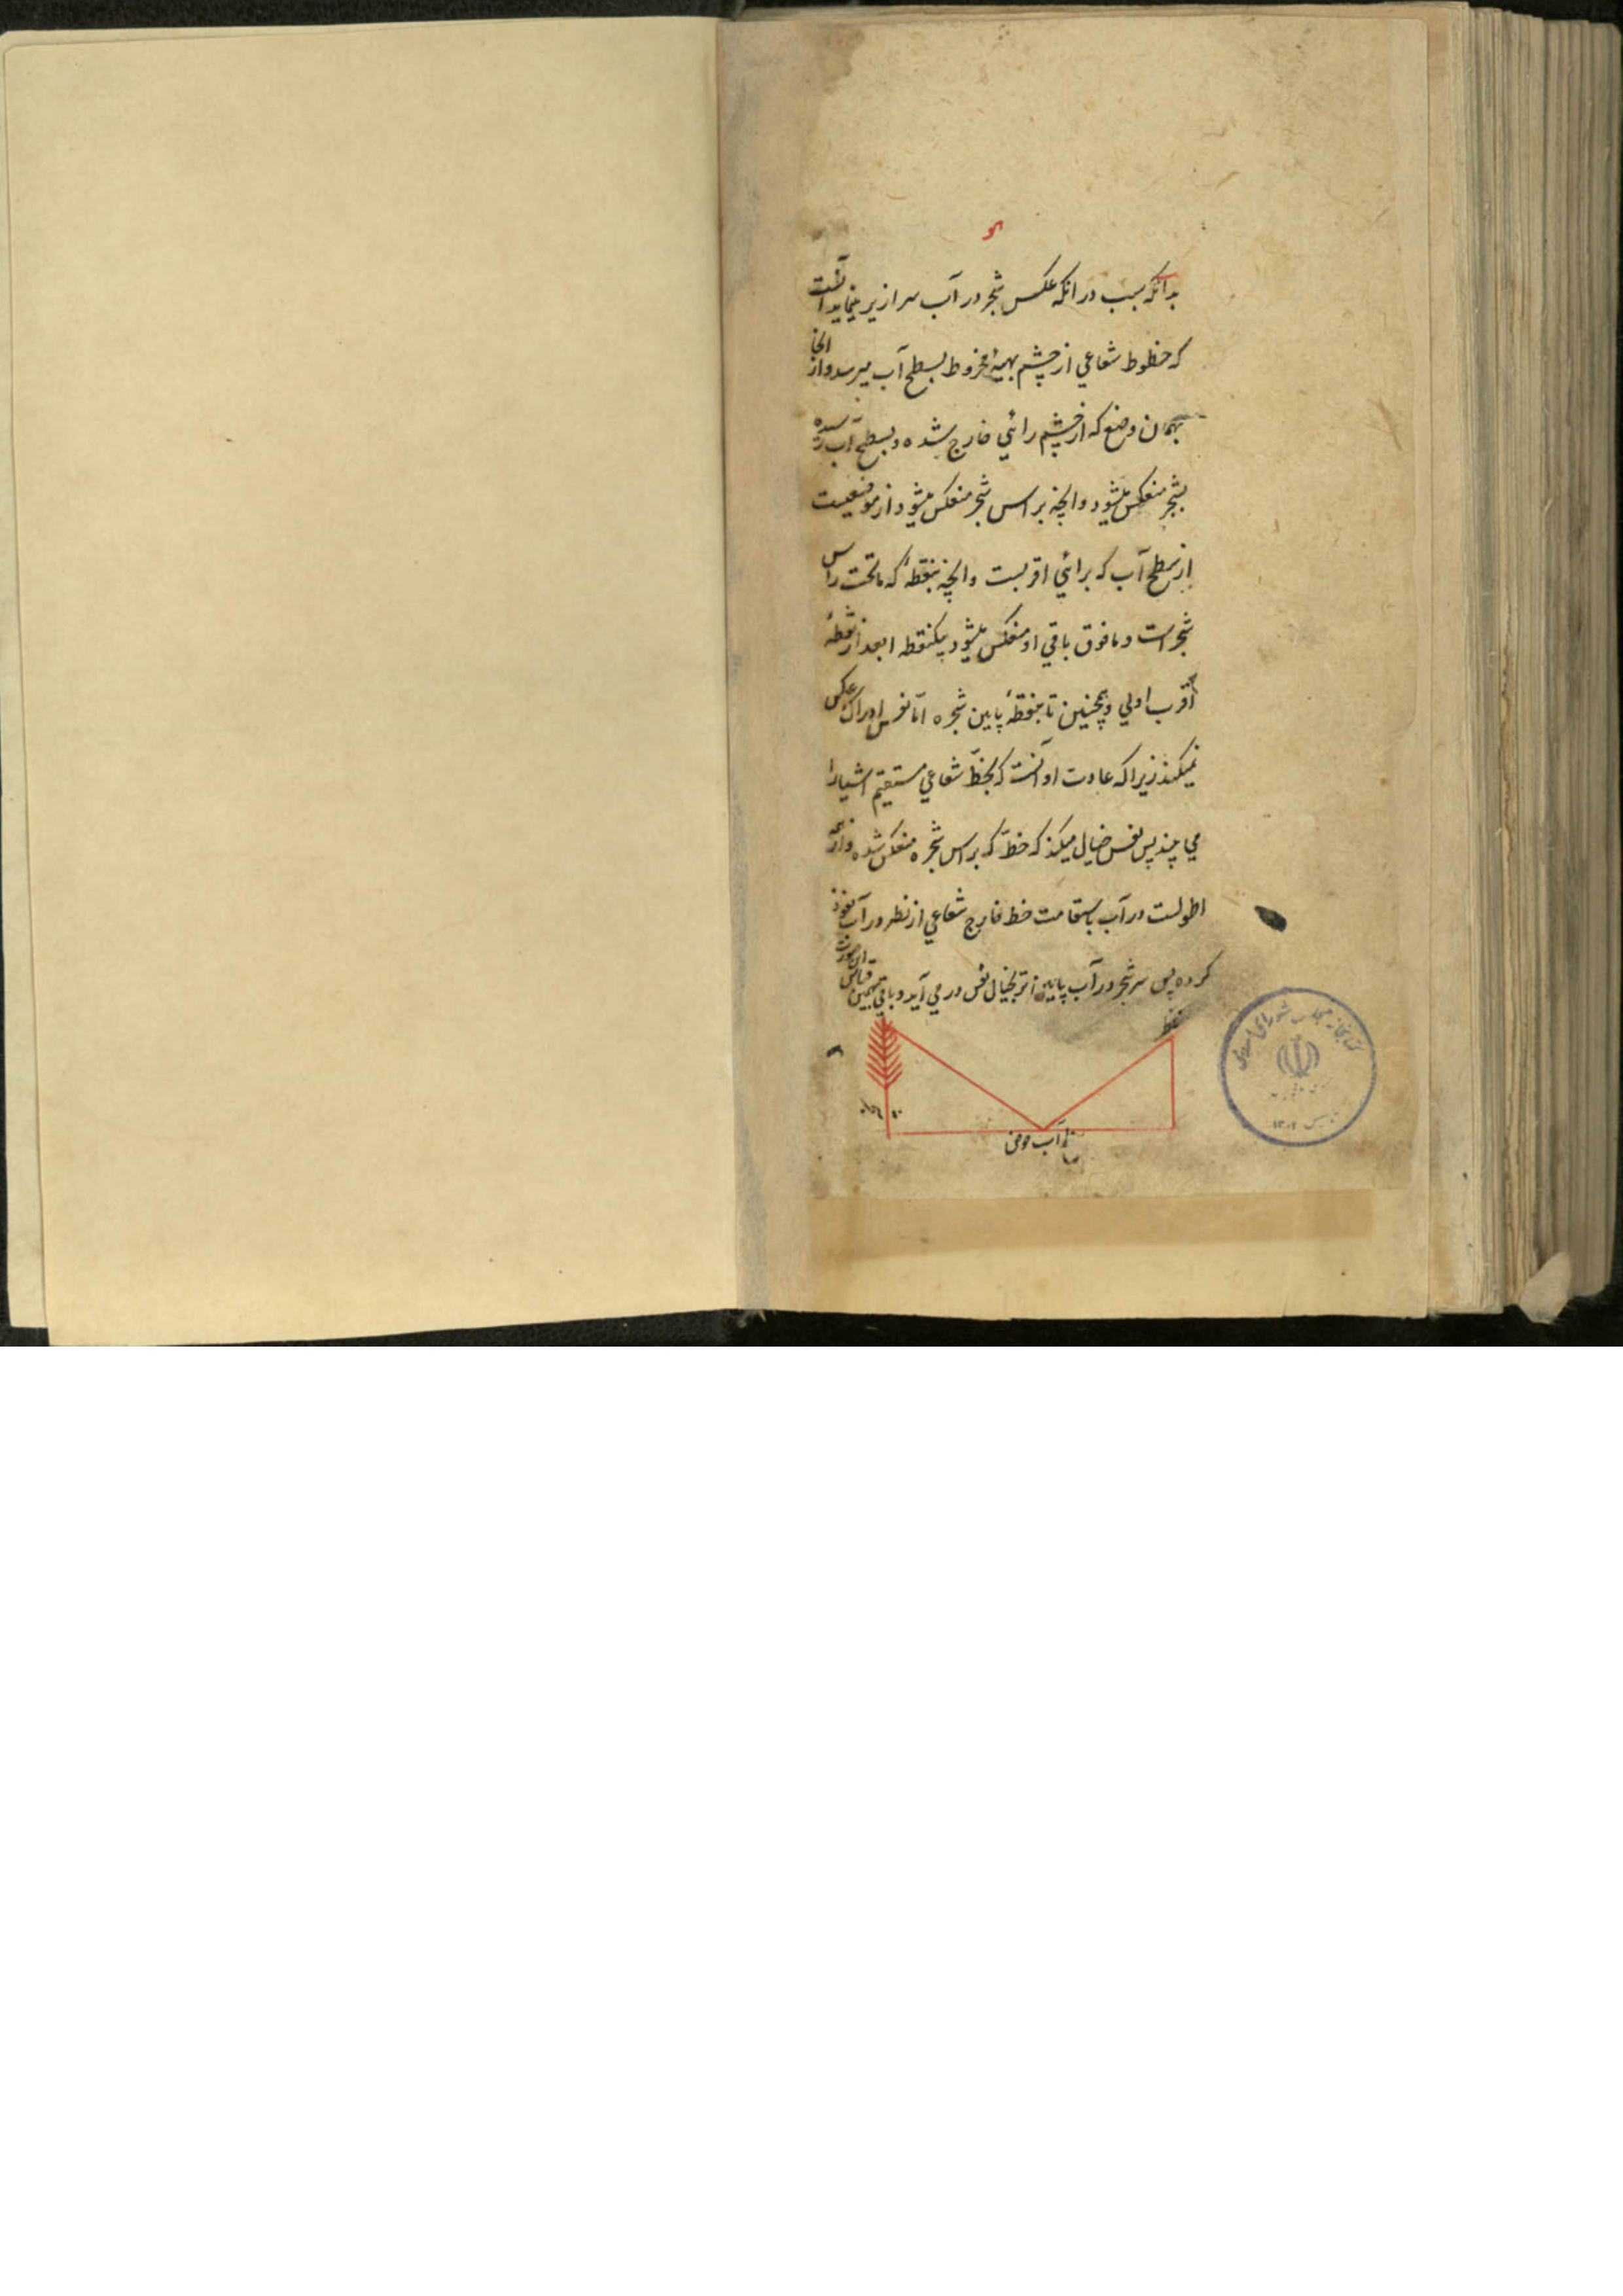 بدانکه سبب در انکه عکس شجر در آب سرازیر مینماید آنست
که خطوط شعاعي از چشم بهیئة مخروط بسطح آب میرسد و از انجا
بهمان وضع که از چشم رائي خارج شده و بسطح آب رسیده
بشجر منعکس میشود و انچه براس شجر منعکس میشود از موضعیست
از سطح آب که برائي اقربست و انچه بنقطۀ که ماتحت راس
شجر است و مافوق باقي او منعکس میشود بیکنقطه ابعد از نقطۀ
اقرب اولي و همچنین تا بنقطۀ پایین شجره امّا نفس ادراک عکس
نمیکند زیرا که عادت او آنست که بخطّ شعاعي مستقیم اشیا را
مي بیند پس نفس خیال میکند که خطّ که براس شجره منعکس شده و از همه
اطولست در آب باستقامت خط خارج شعاعي از نظر در آب نفوذ
کرده پس سر شجر در آب پایین تر بخیال نفس در مي آید و باقي بهمین قیاس
این صورت
نظر
سطح آب حوض
کتابخانه مجلس شورای اسلامی